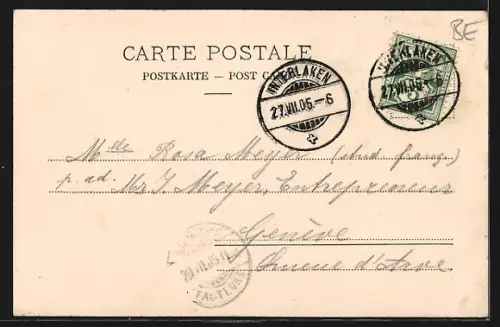 BE
CARTE POSTALE
POSTKARTE — POST CA
INTERLAKEN
27.VII.05.–6
INTERLAKEN
27.VII.05.–6
5
Mlle Rosa Meyer (stud. franç)
p. ad. Mr J. Meyer, Entrepreneur
Genève
d'Arve.
VII.05
FACTEURS